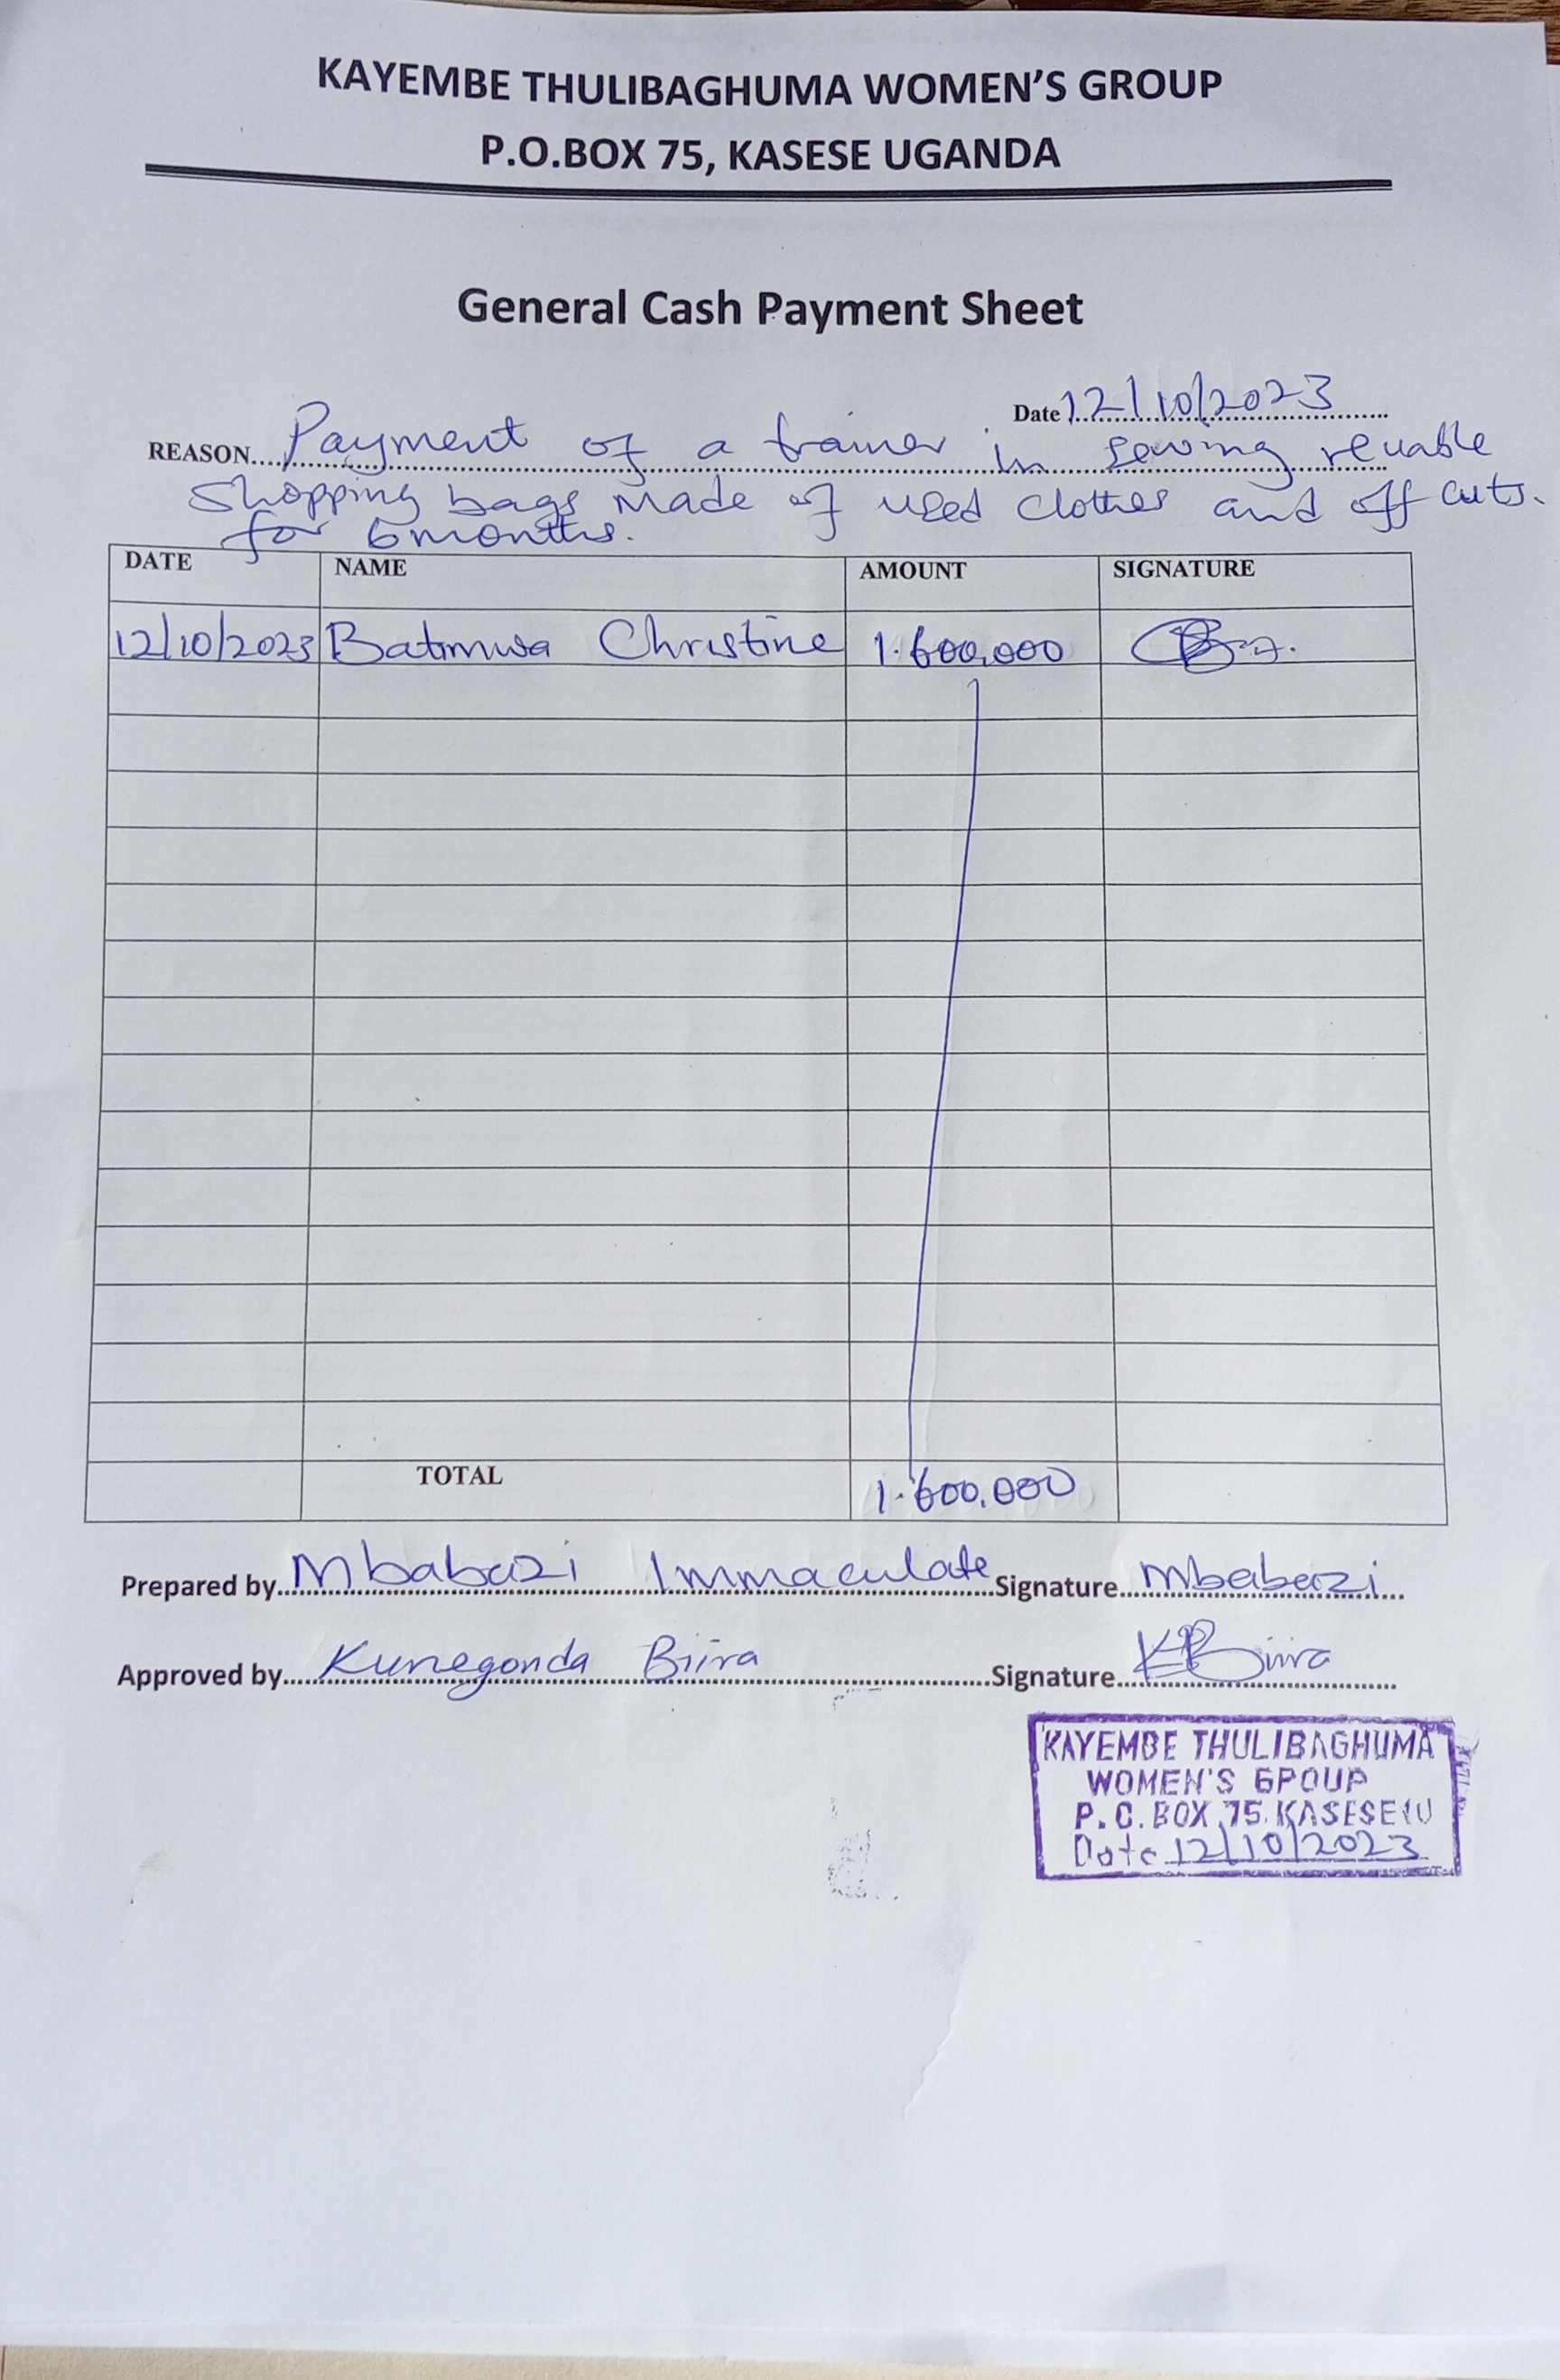 KAYEMBE THULIBAGHUMA WOMEN'S GROUP
P.O.BOX 75, KASESE UGANDA
General Cash Payment Sheet
Date 12/10/2023
REASON Payment of a trainer in sewing reuable
shopping bags made of used clothes and off cuts.
for 6 months.
DATE NAME AMOUNT SIGNATURE
12/10/2023 Batimwa Christine 1.600,000
TOTAL 1.600,000
Prepared by Mbabazi Immaculate Signature Mbabazi
Approved by Kunegonda Biira Signature KBiira
KAYEMBE THULIBAGHUMA
WOMEN'S GROUP
P.O. BOX 75, KASESE (U)
Date 12/10/2023